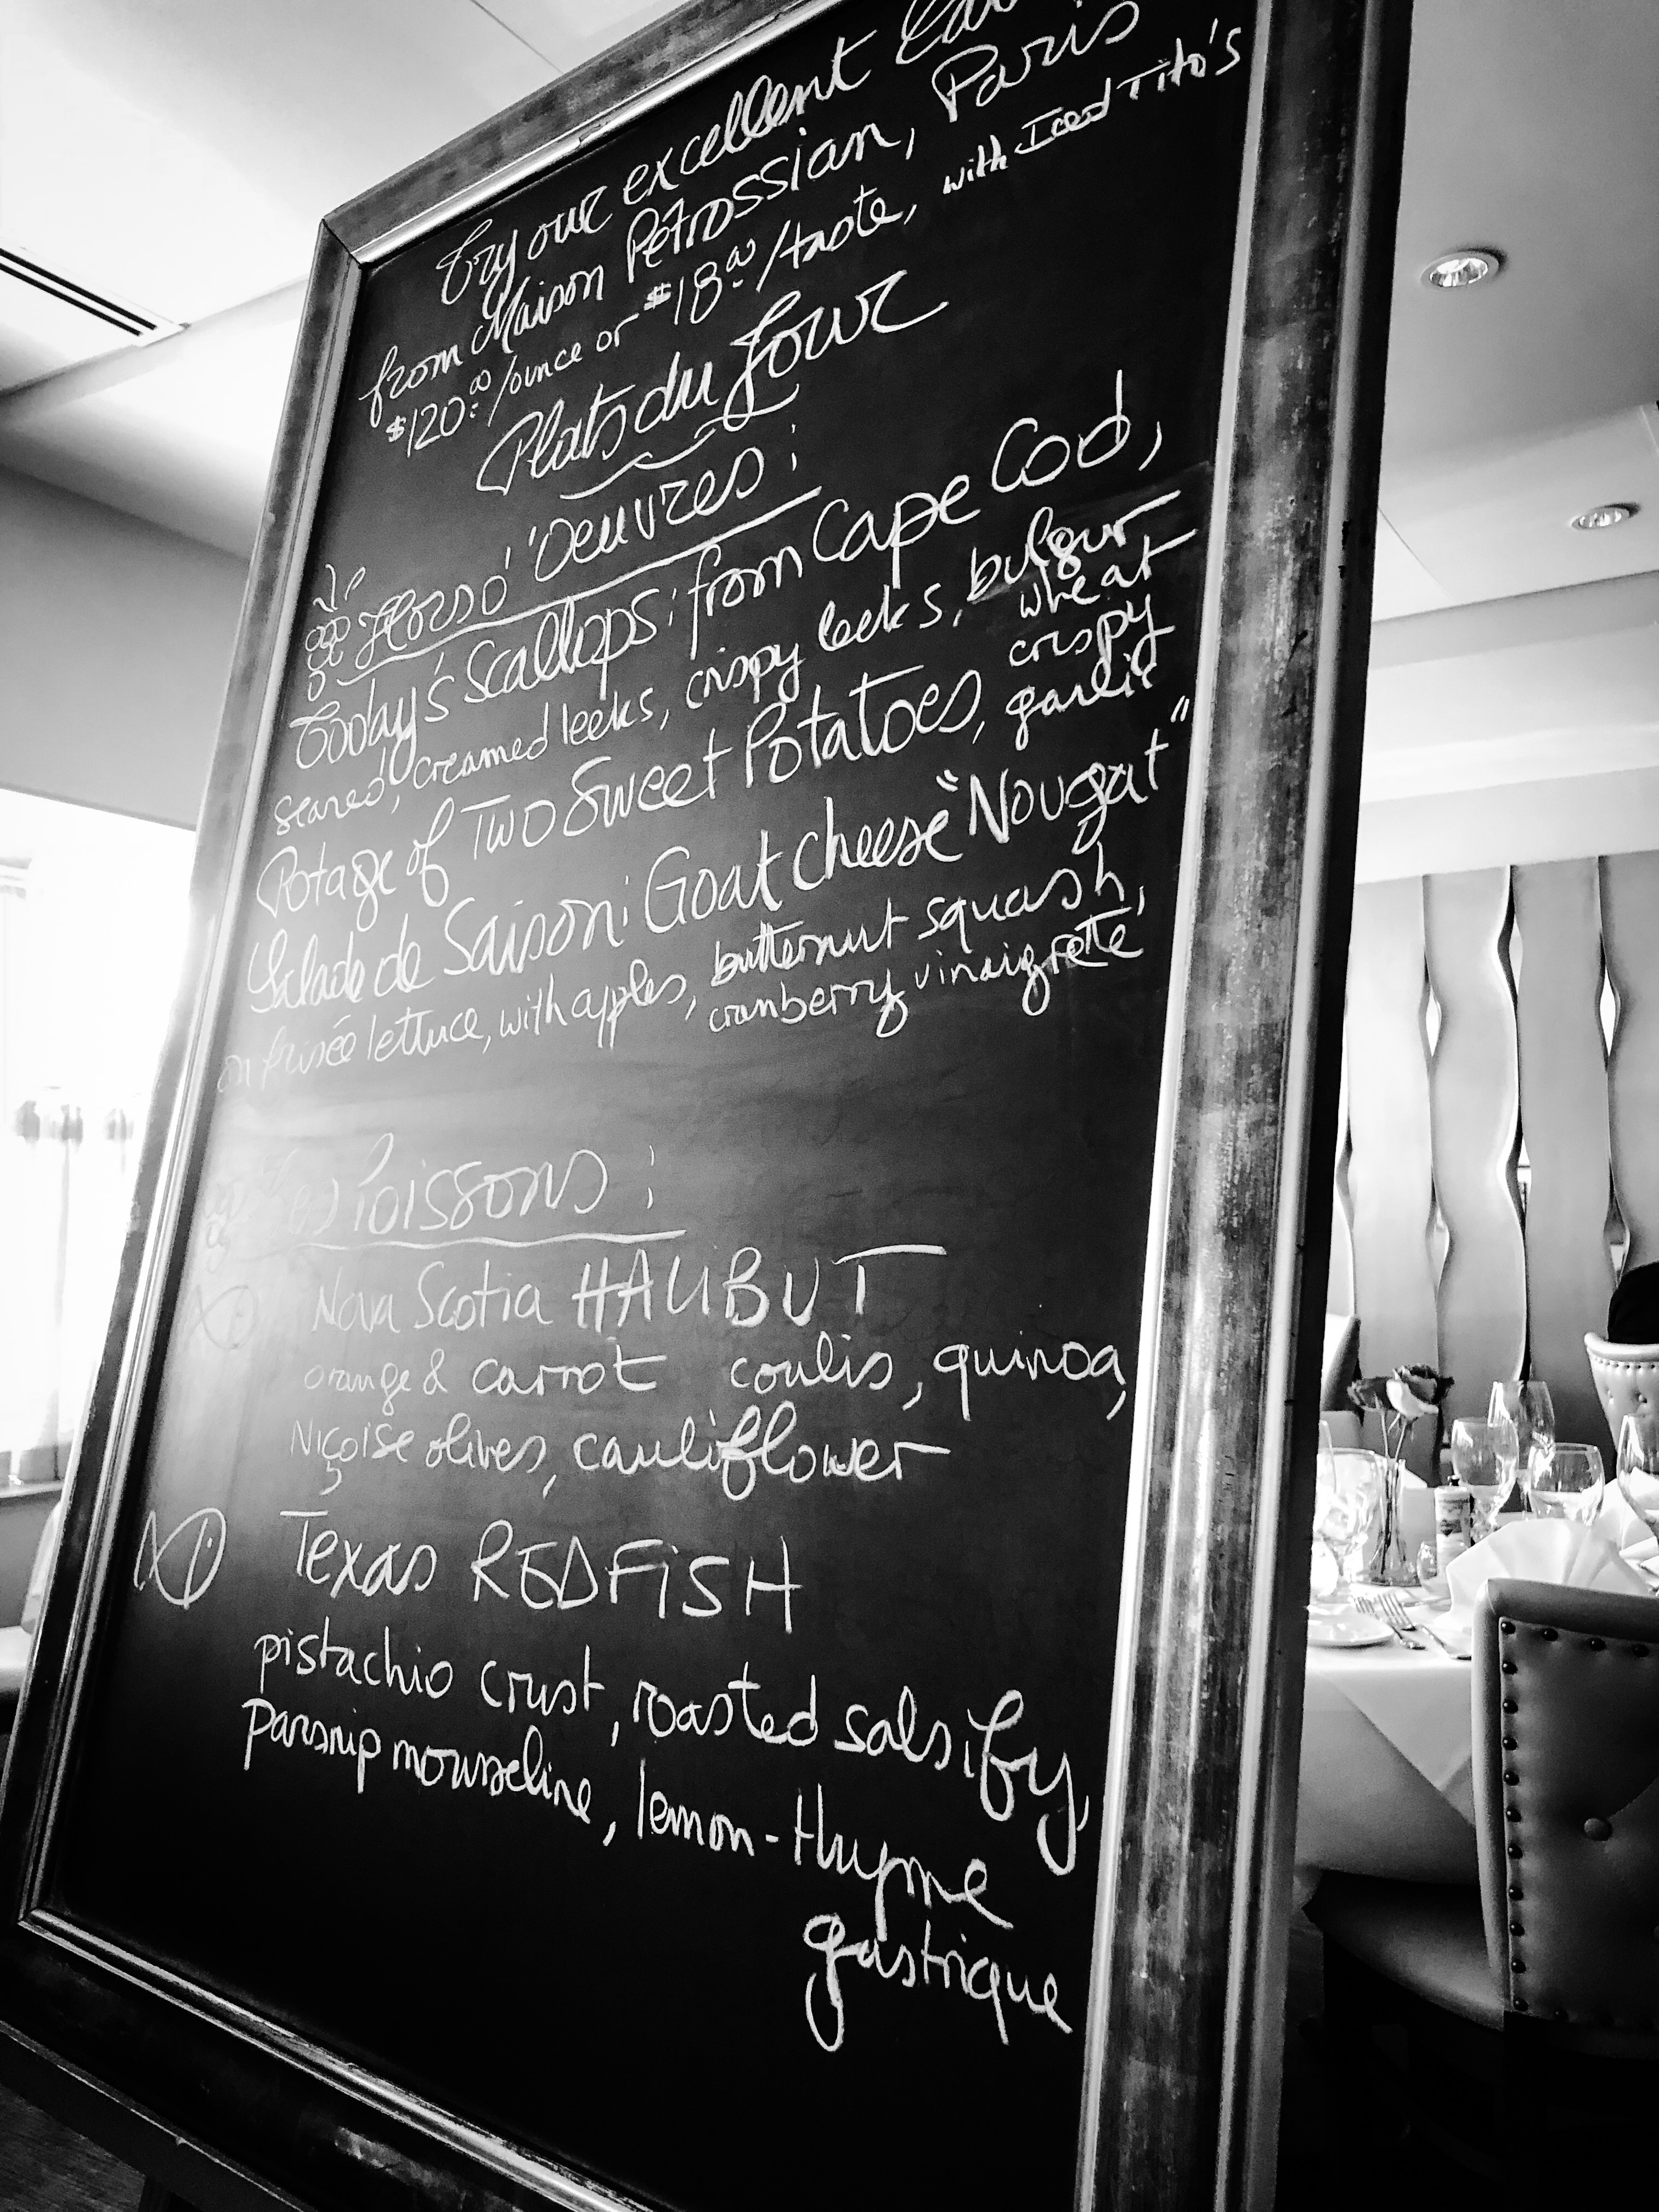 Try our excellent
from Maison Petrossian, Paris
$120.00/ounce or $18.00/taste, with Iced Tito's
Plats du Jour
Hors d'Oeuvres:
Today's Scallops: from Cape Cod,
seared, creamed leeks, crispy leeks, bulgur
wheat
Potage of Two Sweet Potatoes, crispy
garlic
Salade de Saison: Goat cheese "Nougat"
on frisée lettuce, with apples, butternut squash,
cranberry vinaigrette
Les Poissons:
Nova Scotia HALIBUT
orange & carrot coulis, quinoa,
Niçoise olives, cauliflower
Texas REDFiSH
pistachio crust, roasted salsify,
parsnip mousseline, lemon-thyme
gastrique